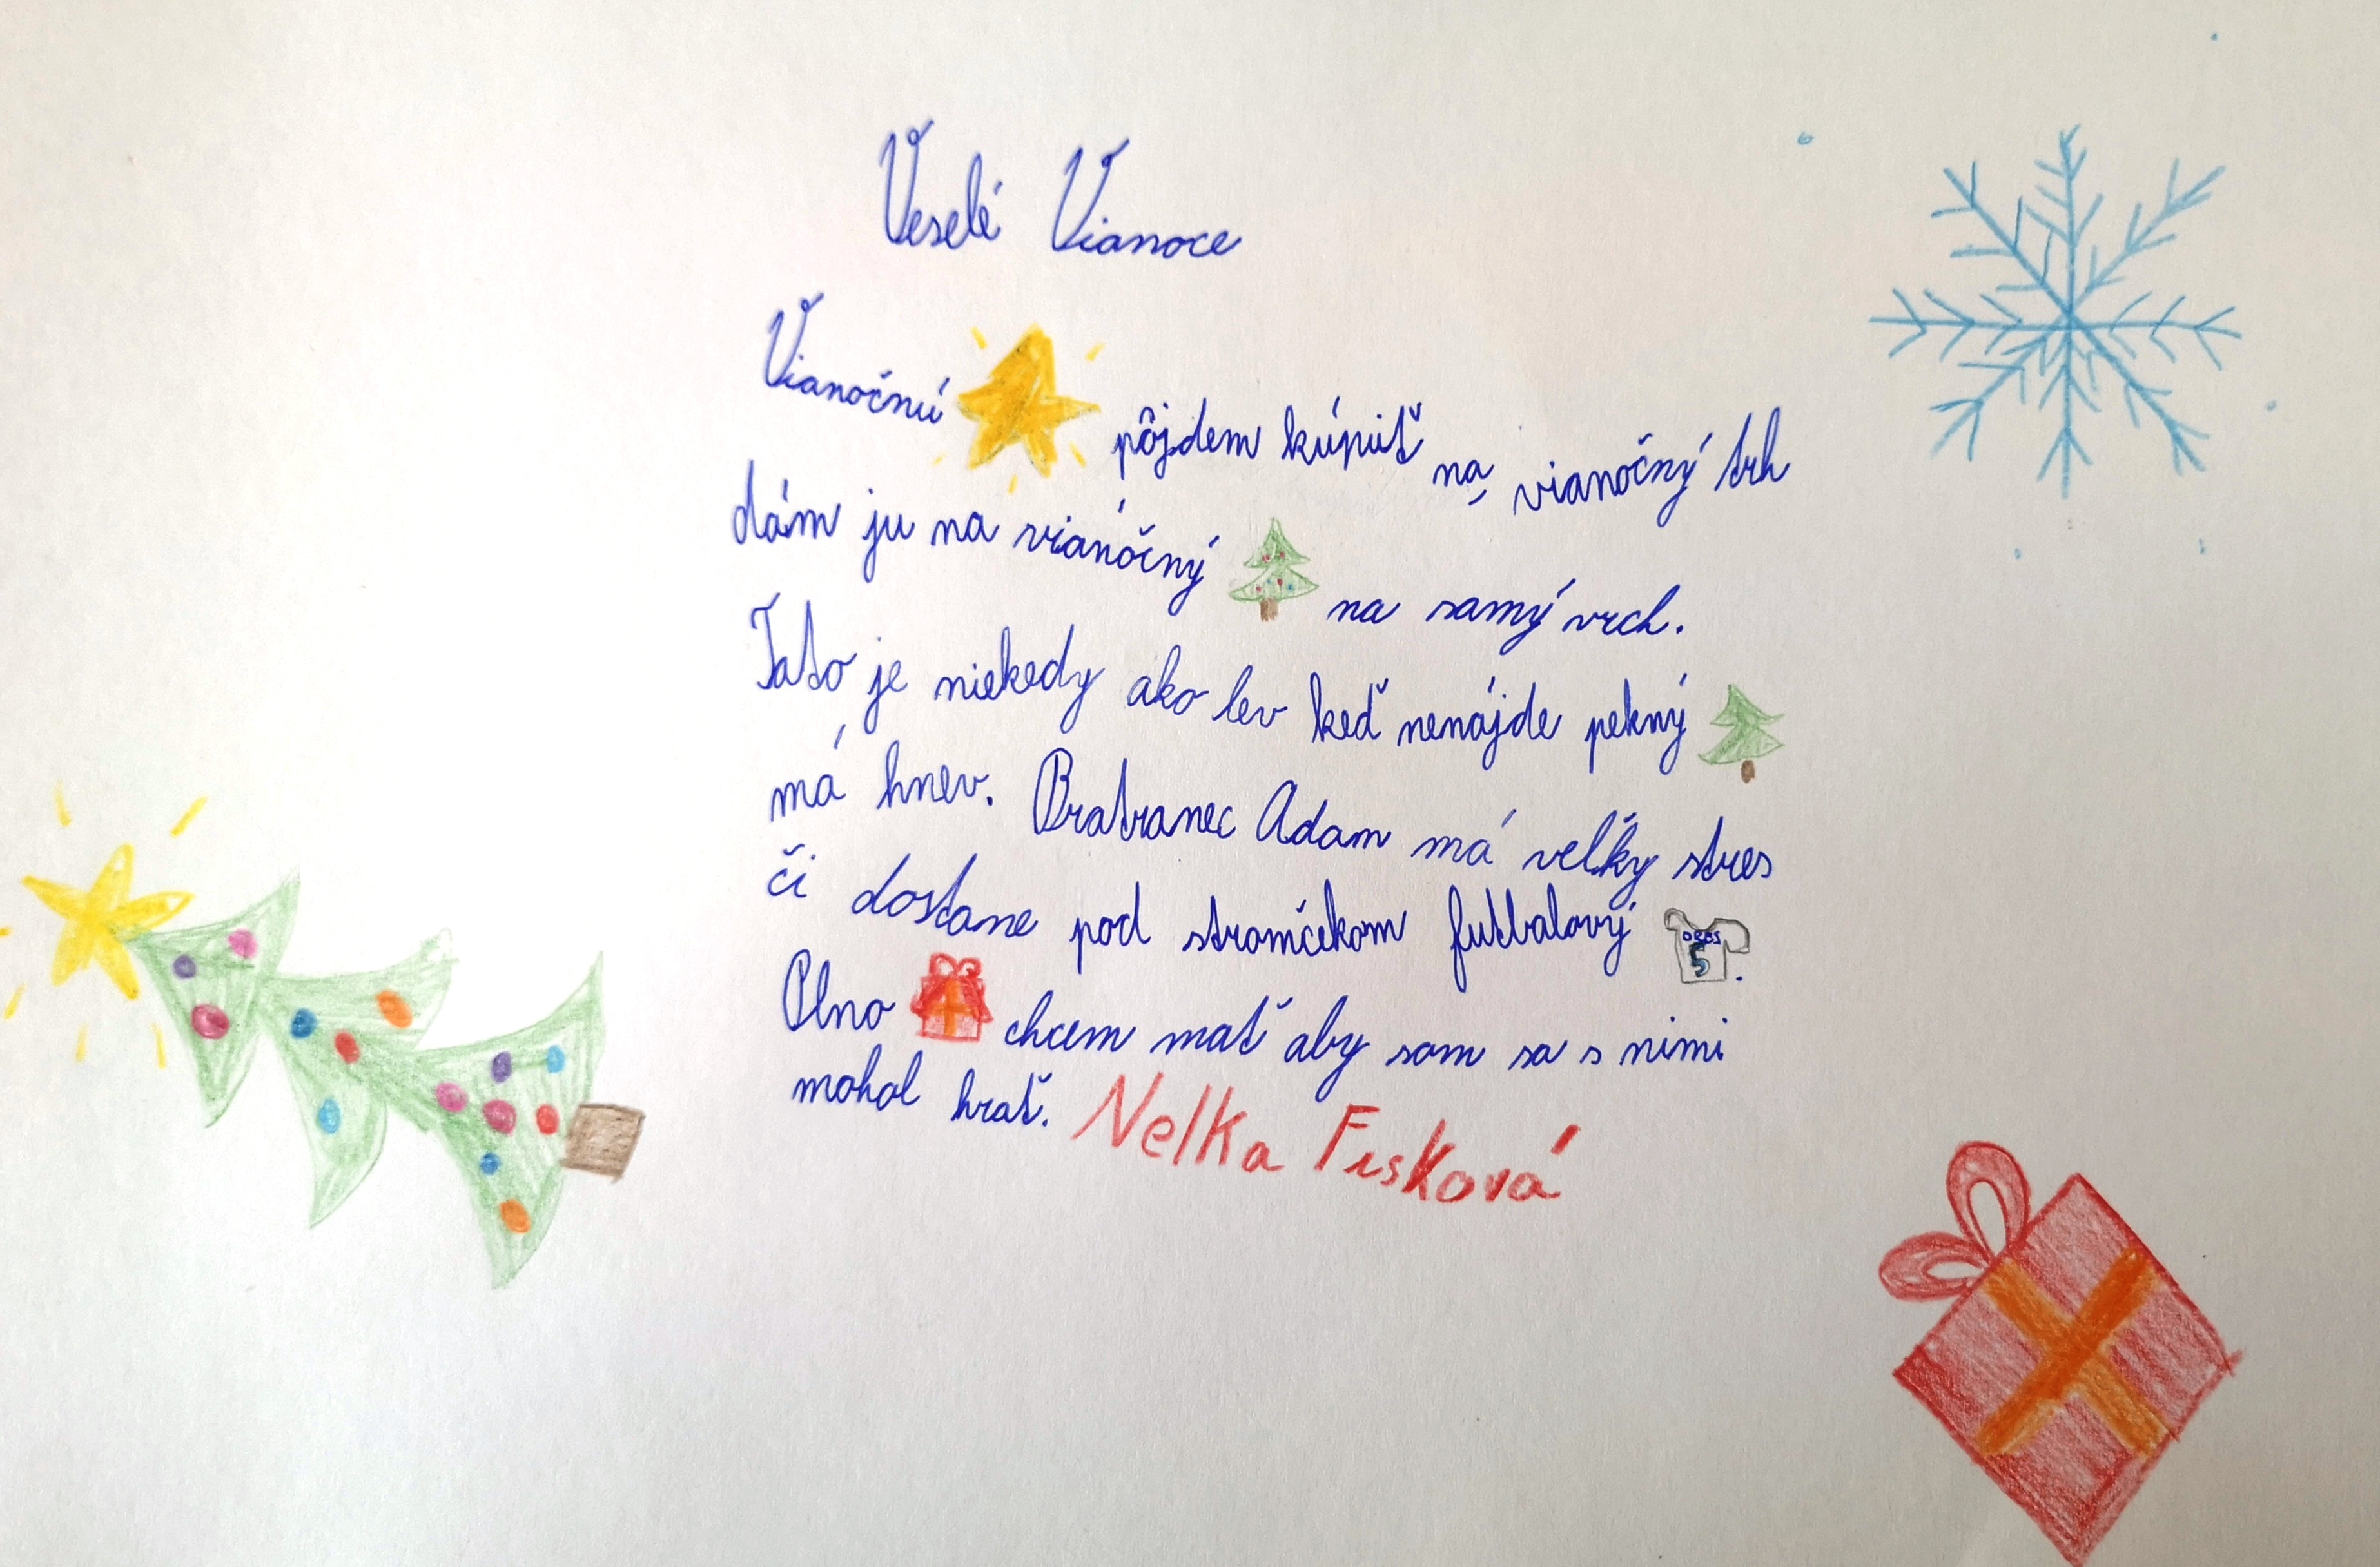 Veselé Vianoce
Vianočnú pôjdem kúpiť na vianočný trh
dám ju na vianočný na samý vrch.
Tato je niekedy ako lev keď nenájde pekný
má hnev. Bratranec Adam má veľký stres
či dostane pod stromčekom futbalový
5
Plno chcem mať aby som sa s nimi
mohol hrať. Nelka Fisková